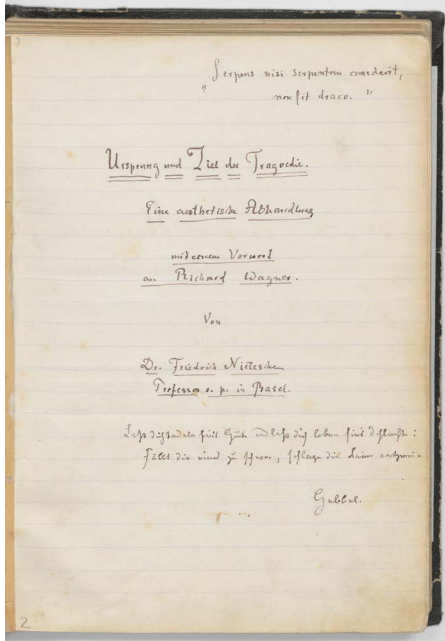 „Serpens nisi serpentem comederit,
non fit draco."
Ursprung und Ziel der Tragoedie.
Eine aesthetische Abhandlung
mit einem Vorwort
an Richard Wagner.
Von
Dr. Friedrich Nietzsche,
Professor o. p. in Basel.
Laß dich tadeln fürs Gute und laß dich loben fürs Schlechte:
Fällt dir eines zu schwer, schlage die Leier entzwei.
Hebbel.
2